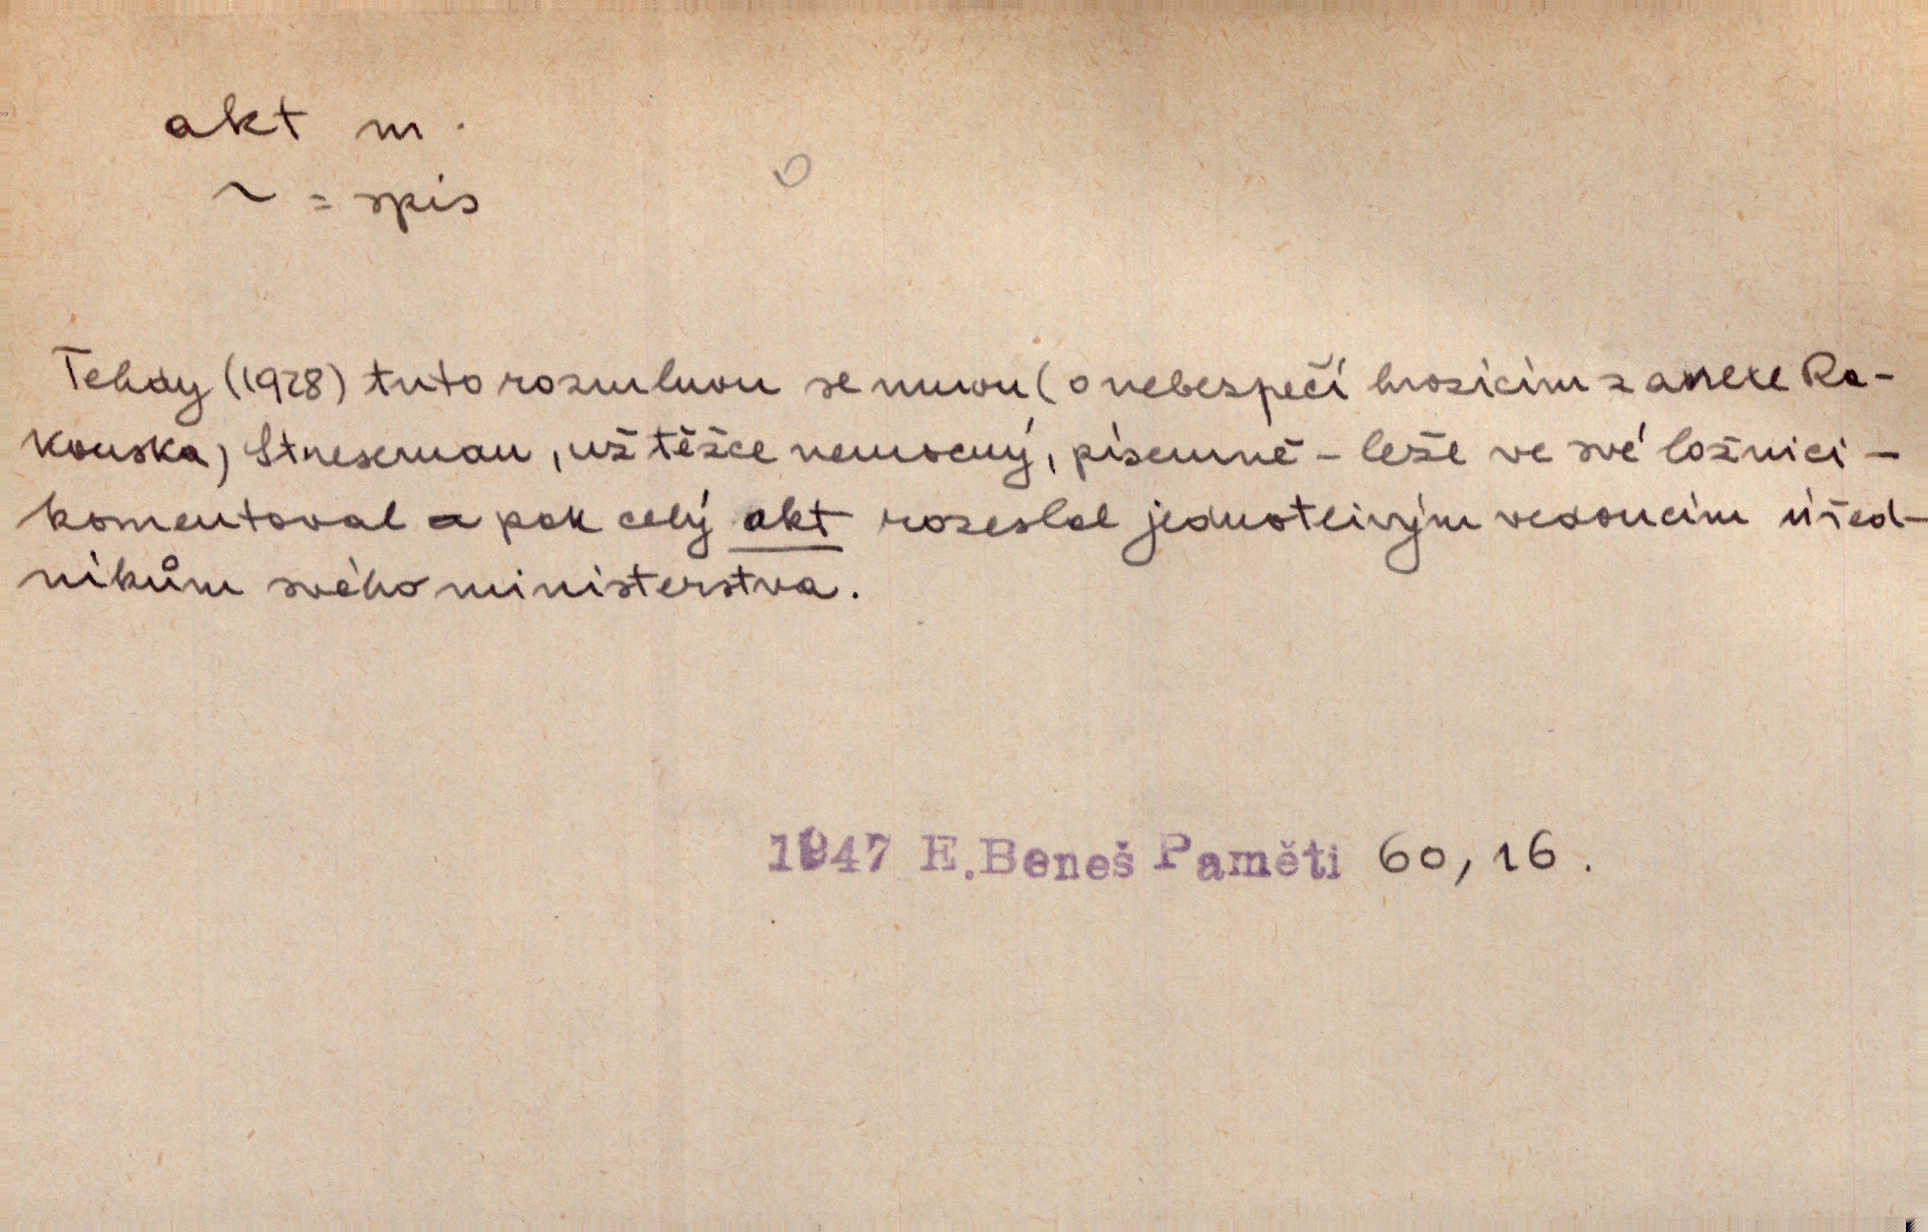 akt m.
~ = spis
Tehdy (1928) tuto rozmluvu se mnou (o nebezpečí hrozícím z anexe Ra-
kouska) Streseman, už těžce nemocný, písemně – leže ve své ložnici –
komentoval a pak celý akt rozeslal jednotlivým vedoucím úřed-
níkům svého ministerstva.
1947 E. Beneš Paměti 60, 16.